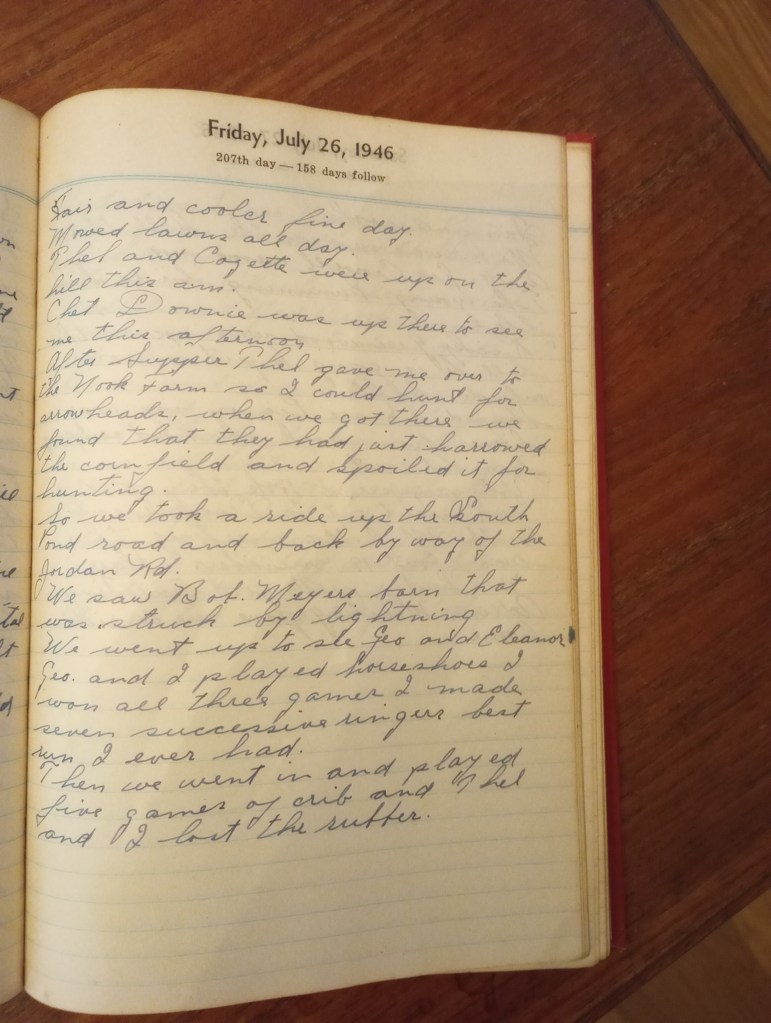 Friday, July 26, 1946
207th day — 158 days follow
Fair and cooler fine day.
Mowed lawns all day.
Phel and Cozette were up on the
hill this am.
Chet Downie was up there to see
me this afternoon
After Supper Phel gave me over to
the Nook Farm so I could hunt for
arrowheads, when we got there we
found that they had just harrowed
the cornfield and spoiled it for
hunting.
So we took a ride up the South
Pond road and back by way of the
Jordan Rd.
We saw Bob. Meyers barn that
was struck by lightning
We went up to see Geo and Eleanor
Geo. and I played horseshoes I
won all three games I made
seven successive ringers best
run I ever had.
Then we went in and played
five games of crib and Phel
and I lost the rubber.